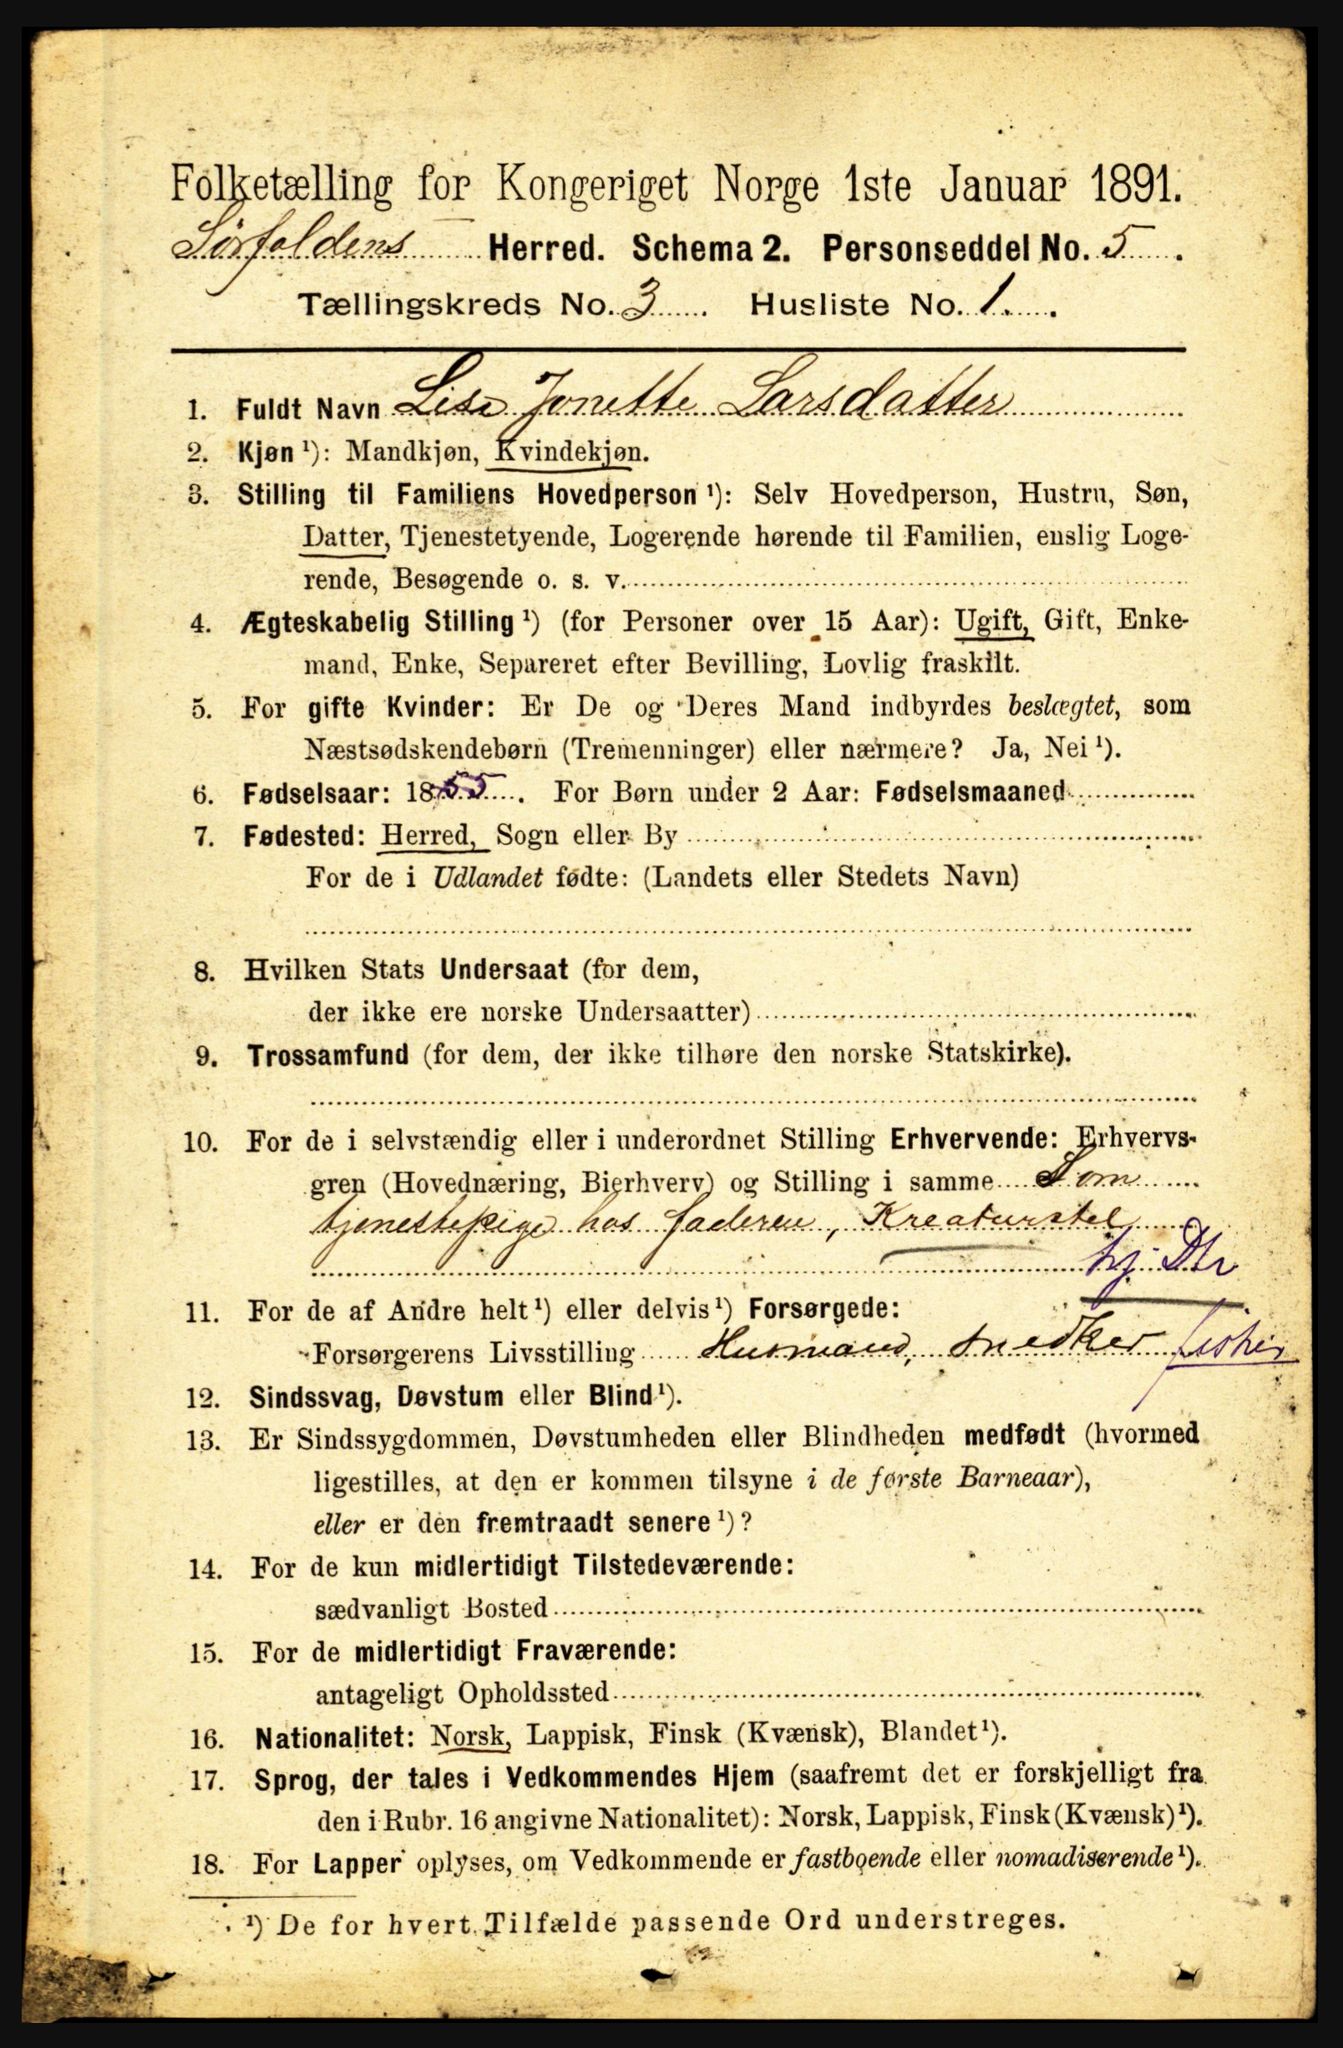 Folketælling for Kongeriget Norge 1ste Januar 1891.
Sørfoldens Herred. Schema 2. Personseddel No. 5.
Tællingskreds No. 3. Husliste No. 1.
1. Fuldt Navn Lise Jonette Larsdatter
2. Kjøn ¹): Mandkjøn, Kvindekjøn.
3. Stilling til Familiens Hovedperson ¹): Selv Hovedperson, Hustru, Søn,
Datter, Tjenestetyende, Logerende hørende til Familien, enslig Loge-
rende, Besøgende o. s. v.
4. Ægteskabelig Stilling ¹) (for Personer over 15 Aar): Ugift, Gift, Enke-
mand, Enke, Separeret efter Bevilling, Lovlig fraskilt.
5. For gifte Kvinder: Er De og Deres Mand indbyrdes beslægtet, som
Næstsødskendebørn (Tremenninger) eller nærmere? Ja, Nei ¹).
6. Fødselsaar: 1855. For Børn under 2 Aar: Fødselsmaaned
7. Fødested: Herred, Sogn eller By
For de i Udlandet fødte: (Landets eller Stedets Navn)
8. Hvilken Stats Undersaat (for dem,
der ikke ere norske Undersaatter)
9. Trossamfund (for dem, der ikke tilhøre den norske Statskirke).
10. For de i selvstændig eller i underordnet Stilling Erhvervende: Erhvervs-
gren (Hovednæring, Bierhverv) og Stilling i samme Som
tjenestepige hos faderen, Kreaturstel
hj. Dtr
11. For de af Andre helt ¹) eller delvis ¹) Forsørgede:
Forsørgerens Livsstilling Husmand, snedker fisker
12. Sindssvag, Døvstum eller Blind ¹).
13. Er Sindssygdommen, Døvstumheden eller Blindheden medfødt (hvormed
ligestilles, at den er kommen tilsyne i de første Barneaar),
eller er den fremtraadt senere ¹)?
14. For de kun midlertidigt Tilstedeværende:
sædvanligt Bosted
15. For de midlertidigt Fraværende:
antageligt Opholdssted
16. Nationalitet: Norsk, Lappisk, Finsk (Kvænsk), Blandet ¹).
17. Sprog, der tales i Vedkommendes Hjem (saafremt det er forskjelligt fra
den i Rubr. 16 angivne Nationalitet): Norsk, Lappisk, Finsk (Kvænsk) ¹).
18. For Lapper oplyses, om Vedkommende er fastboende eller nomadiserende ¹).
¹) De for hvert Tilfælde passende Ord understreges.